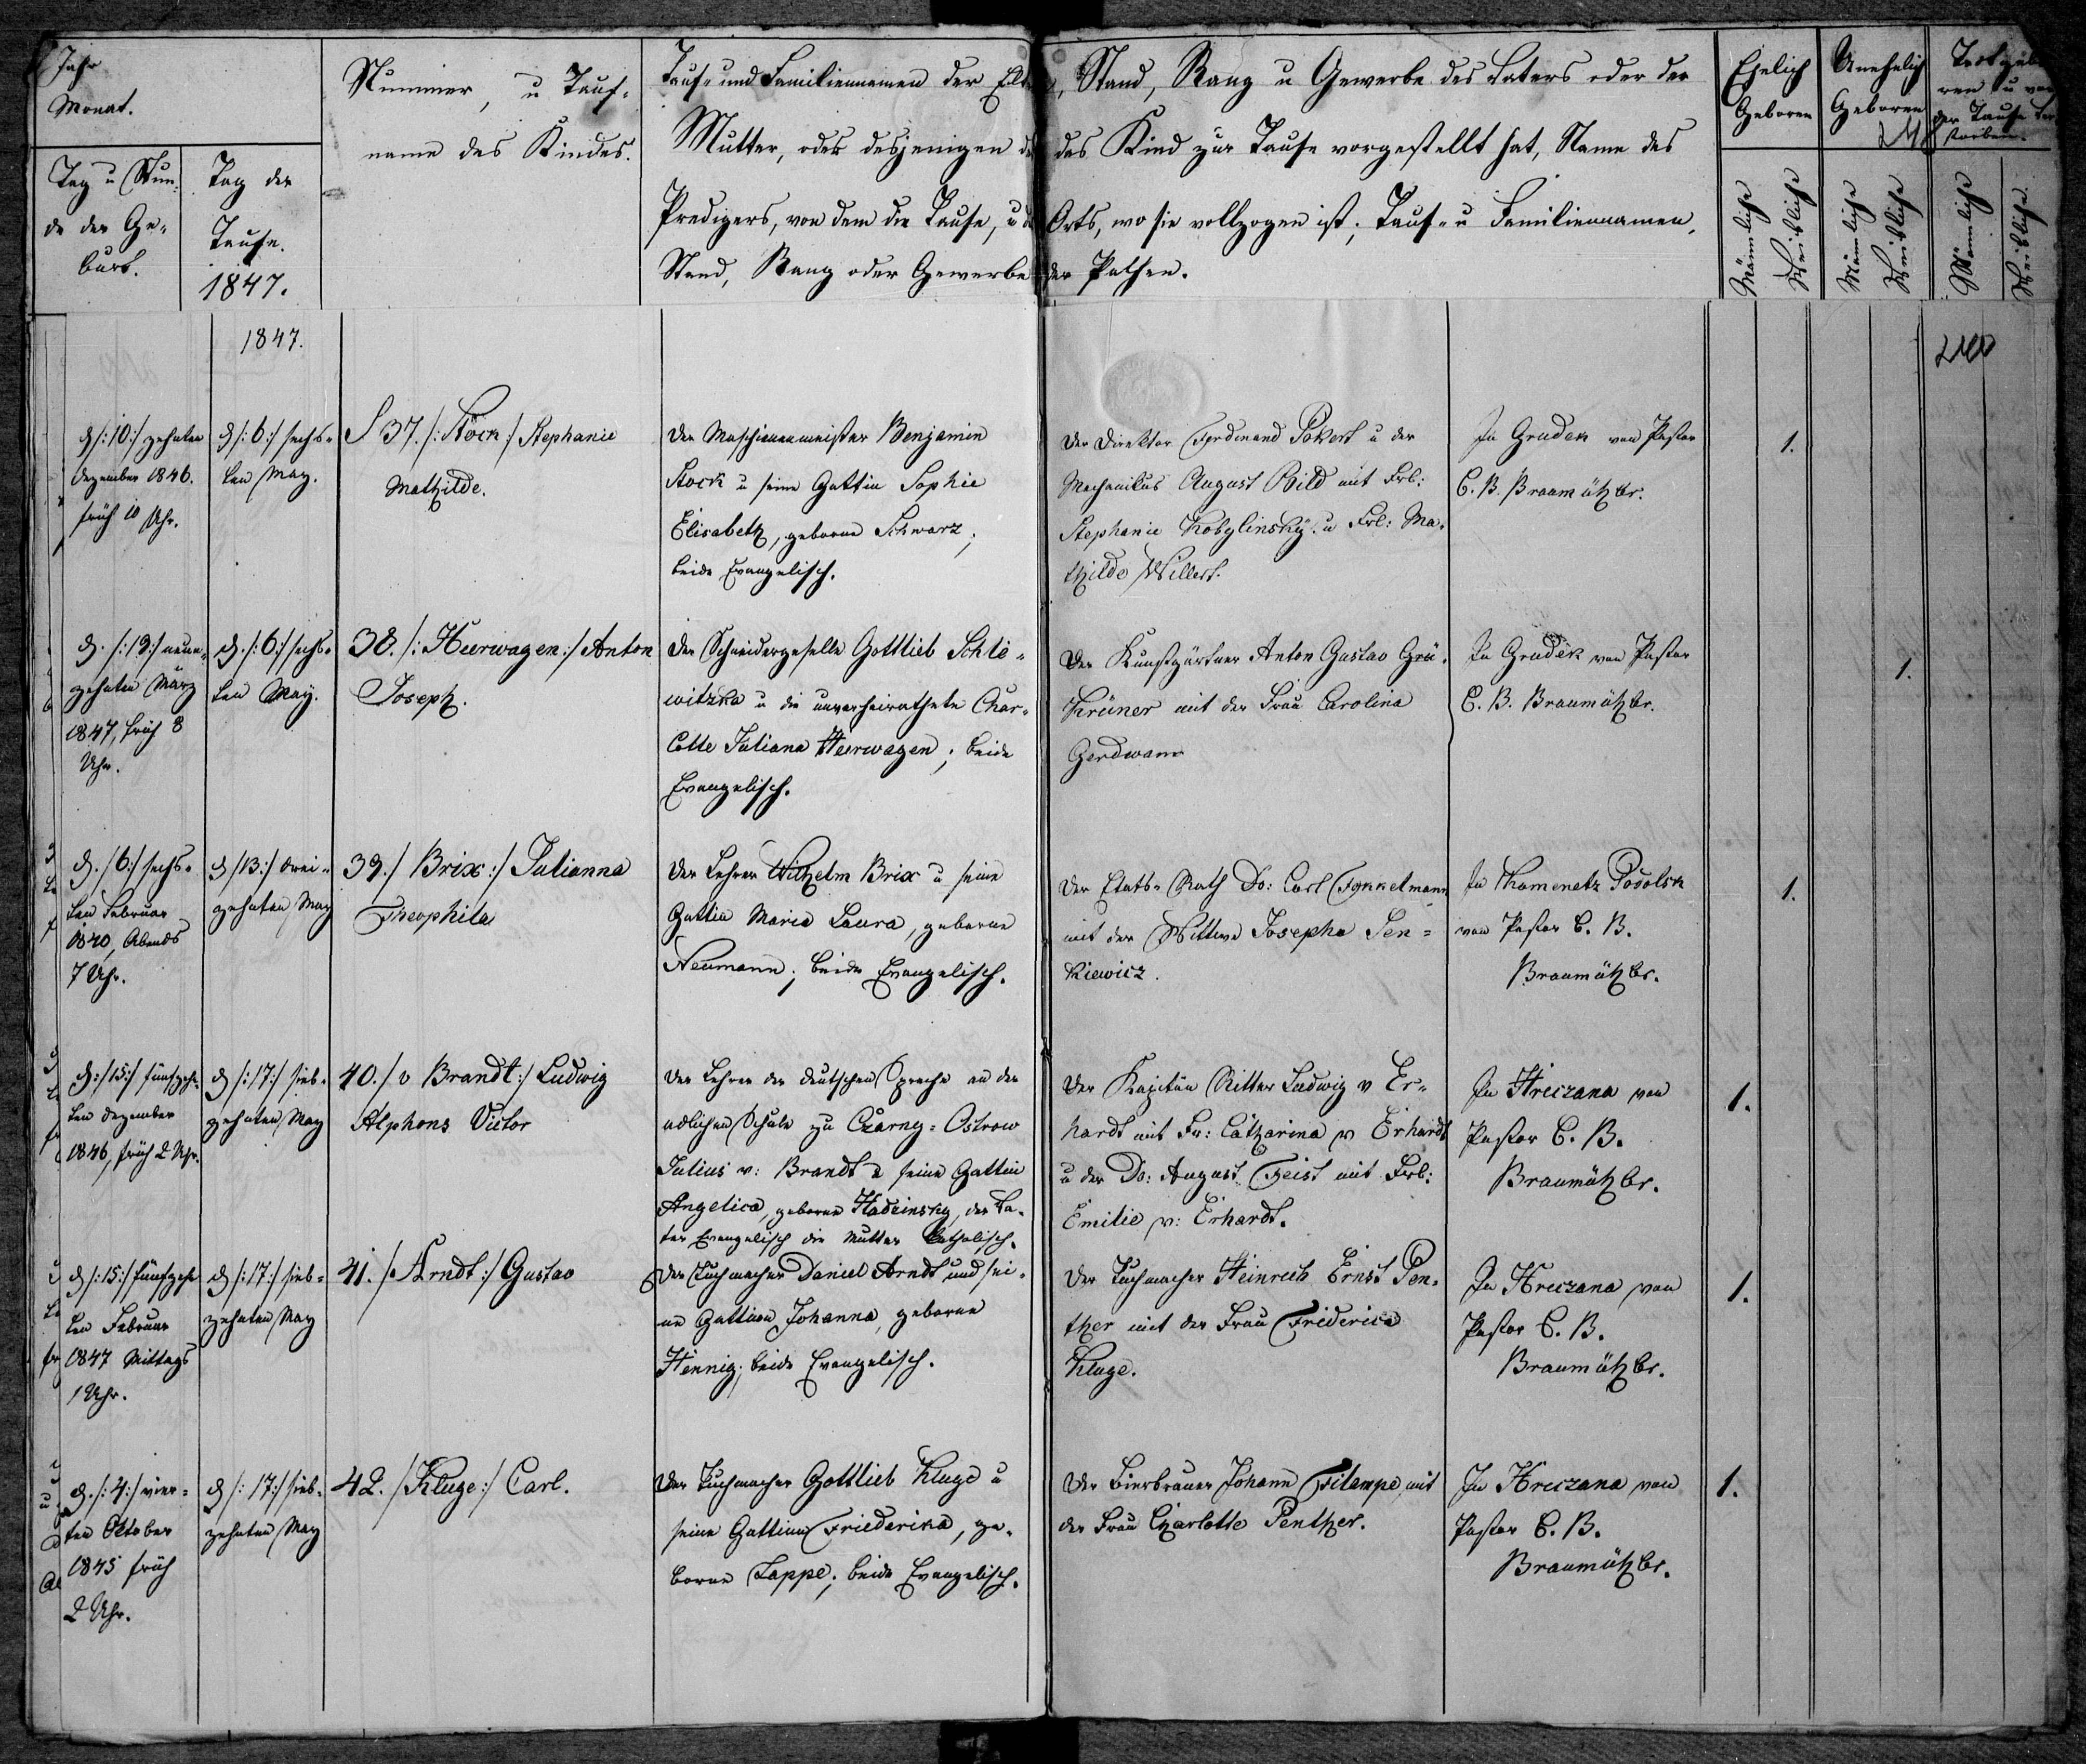 Jahr
Monat.
Tag u Stun-
de der Ge-
burt.
Tag der
Taufe.
1847.
Nummer, u Tauf-
name des Kindes.
Tauf- und Familiennamen der Elte
Mutter, oder desjenigen d
Predigers, von dem die Taufe, u d
Stand, Rang oder Gewerbe
, Stand, Rang u Gewerbe des Vaters oder der
das Kind zur Taufe vorgestellt hat, Name des
Orts, wo sie vollzogen ist; Tauf- u Familiennamen,
der Pathen.
Ehelich
Geboren
Unehelich
Geboren
Todtgebo
ren u vor
der Taufe Ver
storben.
Männliche
Weibliche
Männliche
Weibliche
Männliche
Weibliche
1847.
d /:10:/ zehnten
Dezember 1846.
früh 10 Uhr.
d /:6:/ sechs-
ten May.
37. /: Stock :/ Stephanie
Mathilde.
Der Maschienenmeister Benjamin
Stock u seine Gattin Sophie
Elisabeth, geborne Schwarz;
beide Evangelisch.
Der Direktor Ferdinand Pokert u der
Mechanikus August Bild mit Frl:
Stephanie Kobylinsky u Frl: Ma-
thilde Willert.
In Grudek von Pastor
C. B. Braumüller.
1.
d. /:19:/ neun-
zehnten März
1847, früh 8
Uhr.
d. /:6:/ sechs-
ten May.
38. /: Heerwagen :/ Anton
Joseph.
Der Schneidergeselle Gottlieb Schle-
witzka u die unverheirathete Char-
lotte Juliana Heerwagen; beide
Evangelisch.
Der Kunstgärtner Anton Gustav Grü-
Krüner mit der Frau Carolina
Gerdwann
In Grudek von Pastor
C. B. Braumüller.
1.
d. /6:/ sechs-
ten Februar
1820, Abends
7 Uhr.
d /13:/ drei-
zehnten May
39./ Brix :/ Julianna
Theophila
Der Lehrer Wilhelm Brix u seine
Gattin Maria Laura, geborne
Neumann; beide Evangelisch.
Der Etats-Rath Do: Carl Fonkelmann
mit der Wittwe Josepha Sen-
kiewicz.
In Kamenetz Podolsk
von Pastor C. B.
Braumüller.
1.
d: /:15:/ fünfzehn-
ten Dezember
1846, früh 2 Uhr.
d /:17:/ sieb-
zehnten May
40. / v Brandt :/ Ludwig
Alphons Victor
Der Lehrer der deutschen Sprache an der
adlichen Schule zu Czarny-Ostrow
Julius v: Brandt u seine Gattin
Angelica, geborne Hadzinsky, der Va-
ter Evangelisch die Mutter Catholisch.
Der Kapitän Ritter Ludwig v Er-
hardt mit Fr: Catharina v Erhardt
u der Do: August Feist mit Frl:
Emilie v: Erhardt.
In Hreczana von
Pastor C. B.
Braumüller.
1.
d /:15:/ fünfzehn
ten Februar
1847 Mittags
1 Uhr.
d /:17:/ sieb-
zehnten May
41. / Arndt :/ Gustav
Der Tuchmacher Daniel Arndt und sei-
ne Gattinn Johanna, geborne
Hennig; beide Evangelisch.
Der Tuchmacher Heinrich Ernst Pen-
ther mit der Frau Friderica
Kluge.
In Hreczana von
Pastor C. B.
Braumüller.
1.
d. /:4:/ vier-
ten Oktober
1845 früh
2 Uhr.
d /:17:/ sieb-
zehnten May
42. / Kluge :/ Carl.
Der Tuchmacher Gottlieb Kluge u
seine Gattinn Friederika, ge-
borne Lappe; beide Evangelisch.
Der Bierbrauer Johann Filempe, mit
der Frau Charlotte Penther.
In Hreczana von
Pastor C. B.
Braumüller.
1.